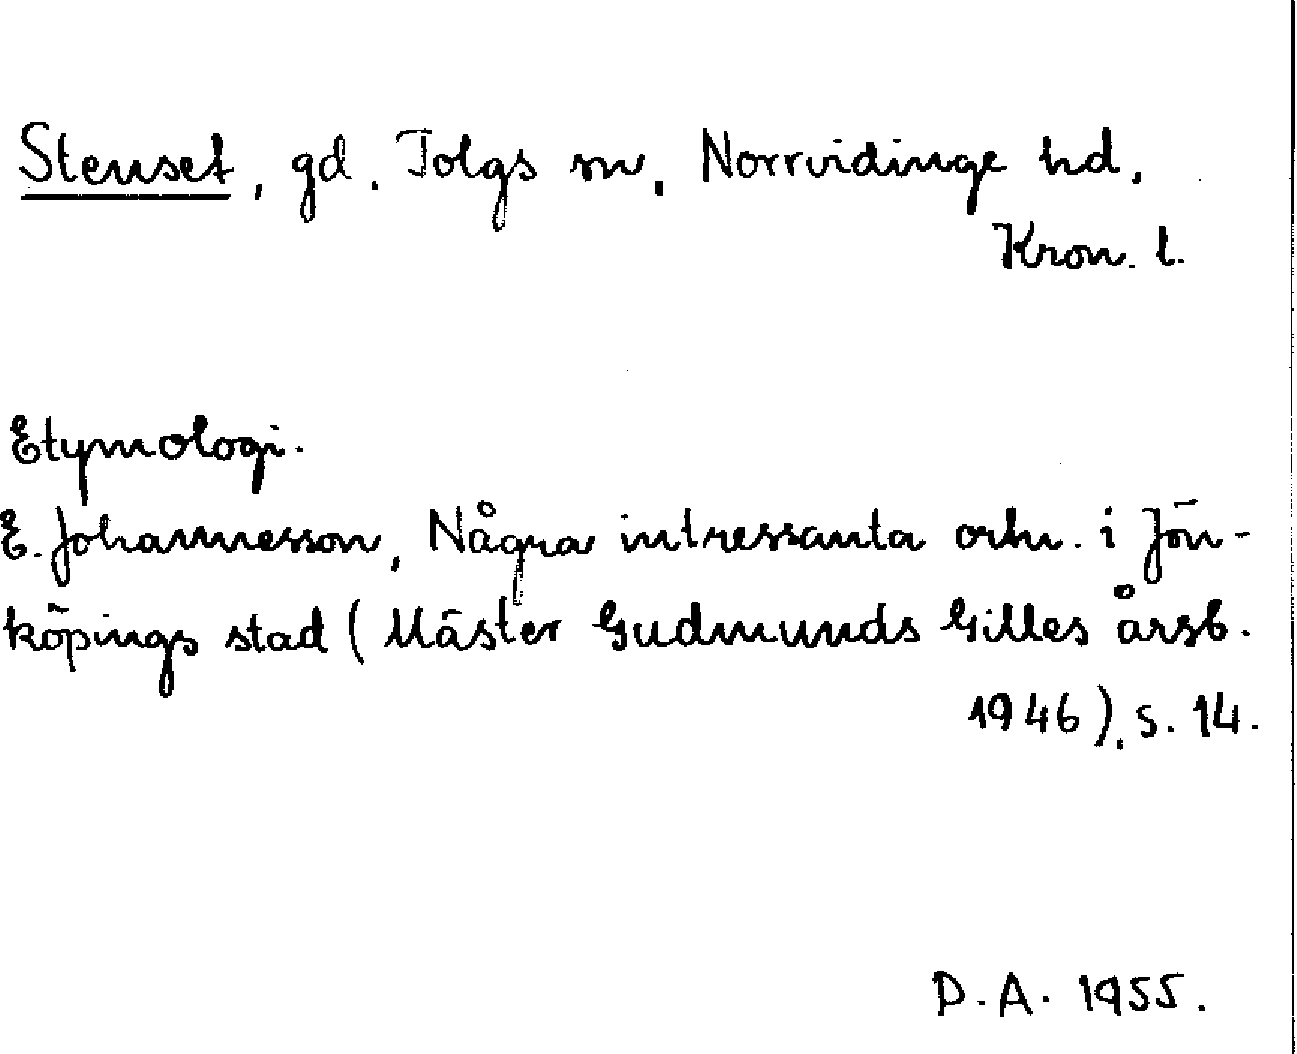 Stenset, gd. Tolgs sn, Norrvidinge hd,
Kron. l.
Etymologi.
E. Johannesson, Några intressanta ortn. i Jön-
köpings stad (Mäster Gudmunds Gilles årsb.
1946), s. 14.
D.A. 1955.